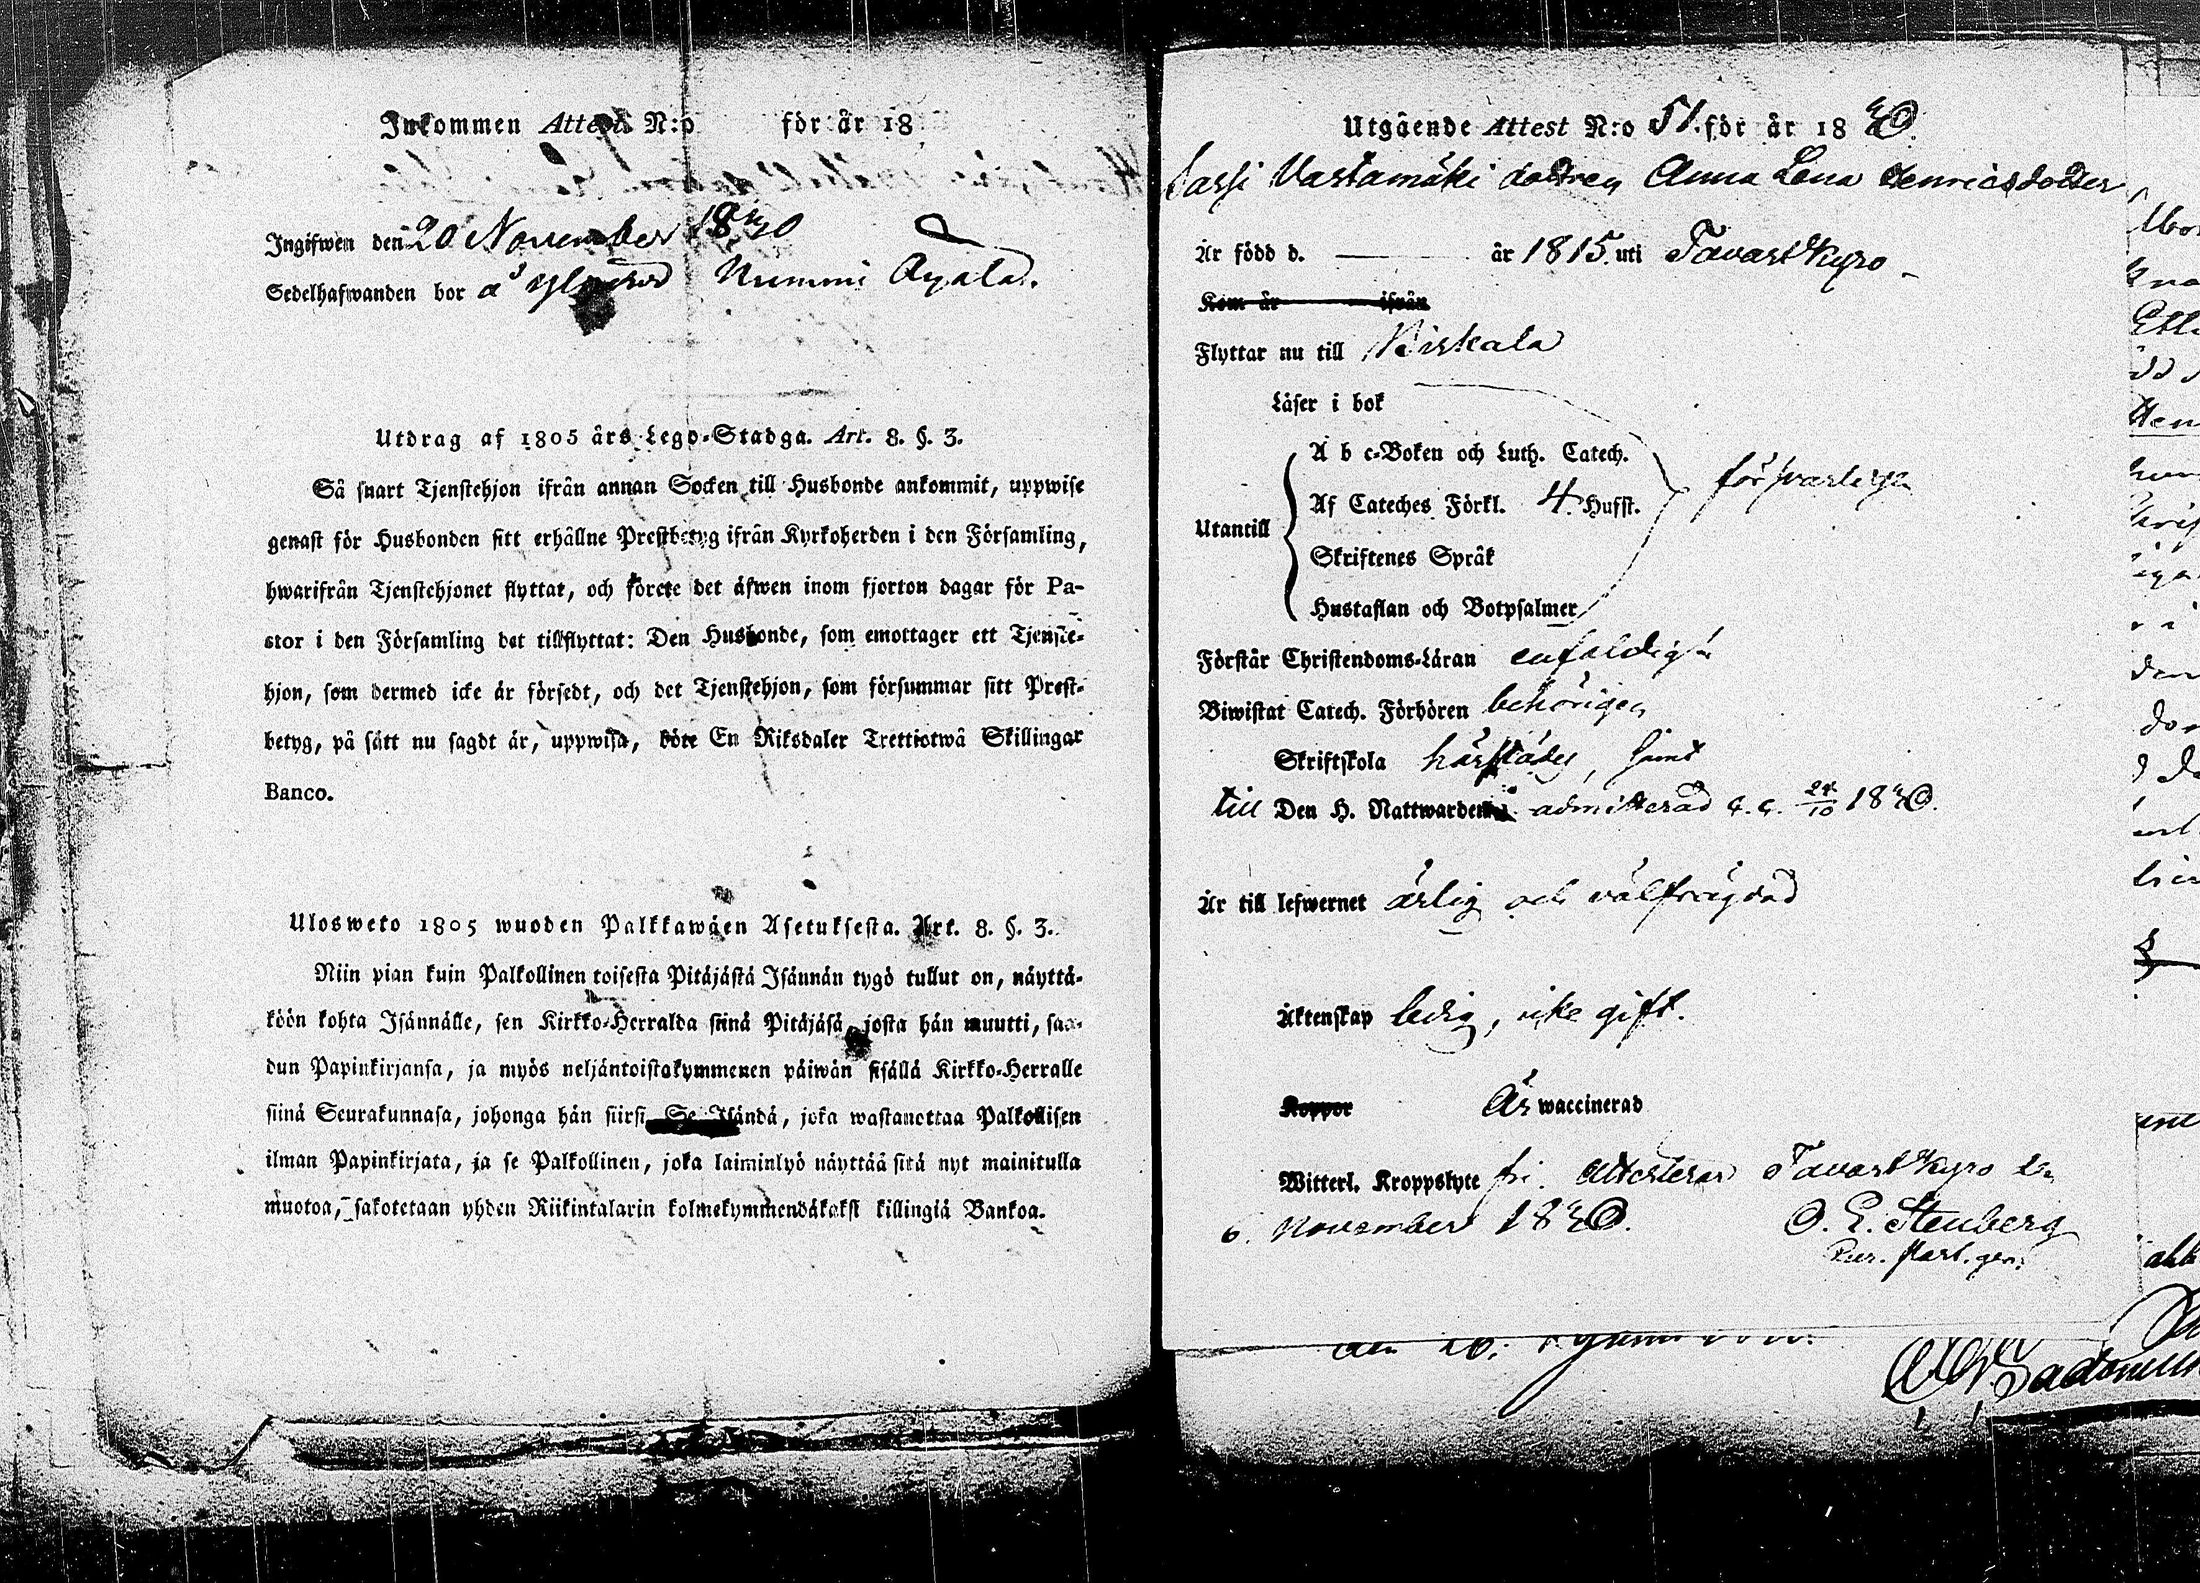 Inkommen Attest N:o för år 18
Ingifwen den 20 November 1840
Sedelhafwanden bor å Nummi Äyälä.
Utdrag af 1805 års Lego-Stadga. Art. 8. §. 3.
Så snart Tjenstehjon ifrån annan Socken till Husbonde ankommit, uppwise
genast för Husbonden sitt erhållne Prestbetyg ifrån Kyrkoherden i den Församling,
hwarifrån Tjenstehjonet flyttat, och förete det äfwen inom fjorton dagar för Pa-
stor i den Församling det tillflyttat: Den Husbonde, som emottager ett Tjenste-
hjon, som dermed icke är försedt, och det Tjenstehjon, som försummar sitt Prest-
betyg, på sätt nu sagdt är, uppwisa, böte En Riksdaler Trettiotwå Skillingar
Banco.
Ulosweto 1805 wuoden Palkkawäen Asetuksesta. Art. 8. §. 3.
Niin pian kuin Palkollinen toisesta Pitäjästä Isännän tygö tullut on, näyttä-
köön kohta Isännälle, sen Kirkko-Herralda siinä Pitäjäsä, josta hän muutti, saa-
dun Papinkirjansa, ja myös neljäntoistakymmenen päiwän sisällä Kirkko-Herralle
siinä Seurakunnasa, johonga hän siirsi Se Isändä, joka wastanottaa Palkollisen
ilman Papinkirjata, ja se Palkollinen, joka laiminlyö näyttää sitä nyt mainitulla
muotoa, sakotetaan yhden Riikintalarin kolmekymmendäkaksi killingiä Bankoa.
Utgående Attest N:o 51. för år 1840.
Sassi Vastamäki dottren Anna Lena Henricsdotter
Är född d. år 1815. uti Tavastkyro
Kom år ifrån
Flyttar nu till Birkala
Läser i bok
A b c-Boken och Luth. Catech.
försvarliga
Af Cateches Förkl. 4. Hufst.
Utantill
Skriftenes Språk
Hustaflan och Botpsalmer
Förstår Christendoms-Läran enfaldigt
Biwistat Catech. Förhören behörigen
Skriftskola härstädes, samt
till Den H. Nattwarden admitterad 1840.
Är till lefwernet ärlig och välfrägdad
Äktenskap ledig, icke gift.
Koppor Är waccinerad
Witterl. Kroppslyte fri. Attesterar Tavastkyro den
6. November 1840. O. E. Stenberg